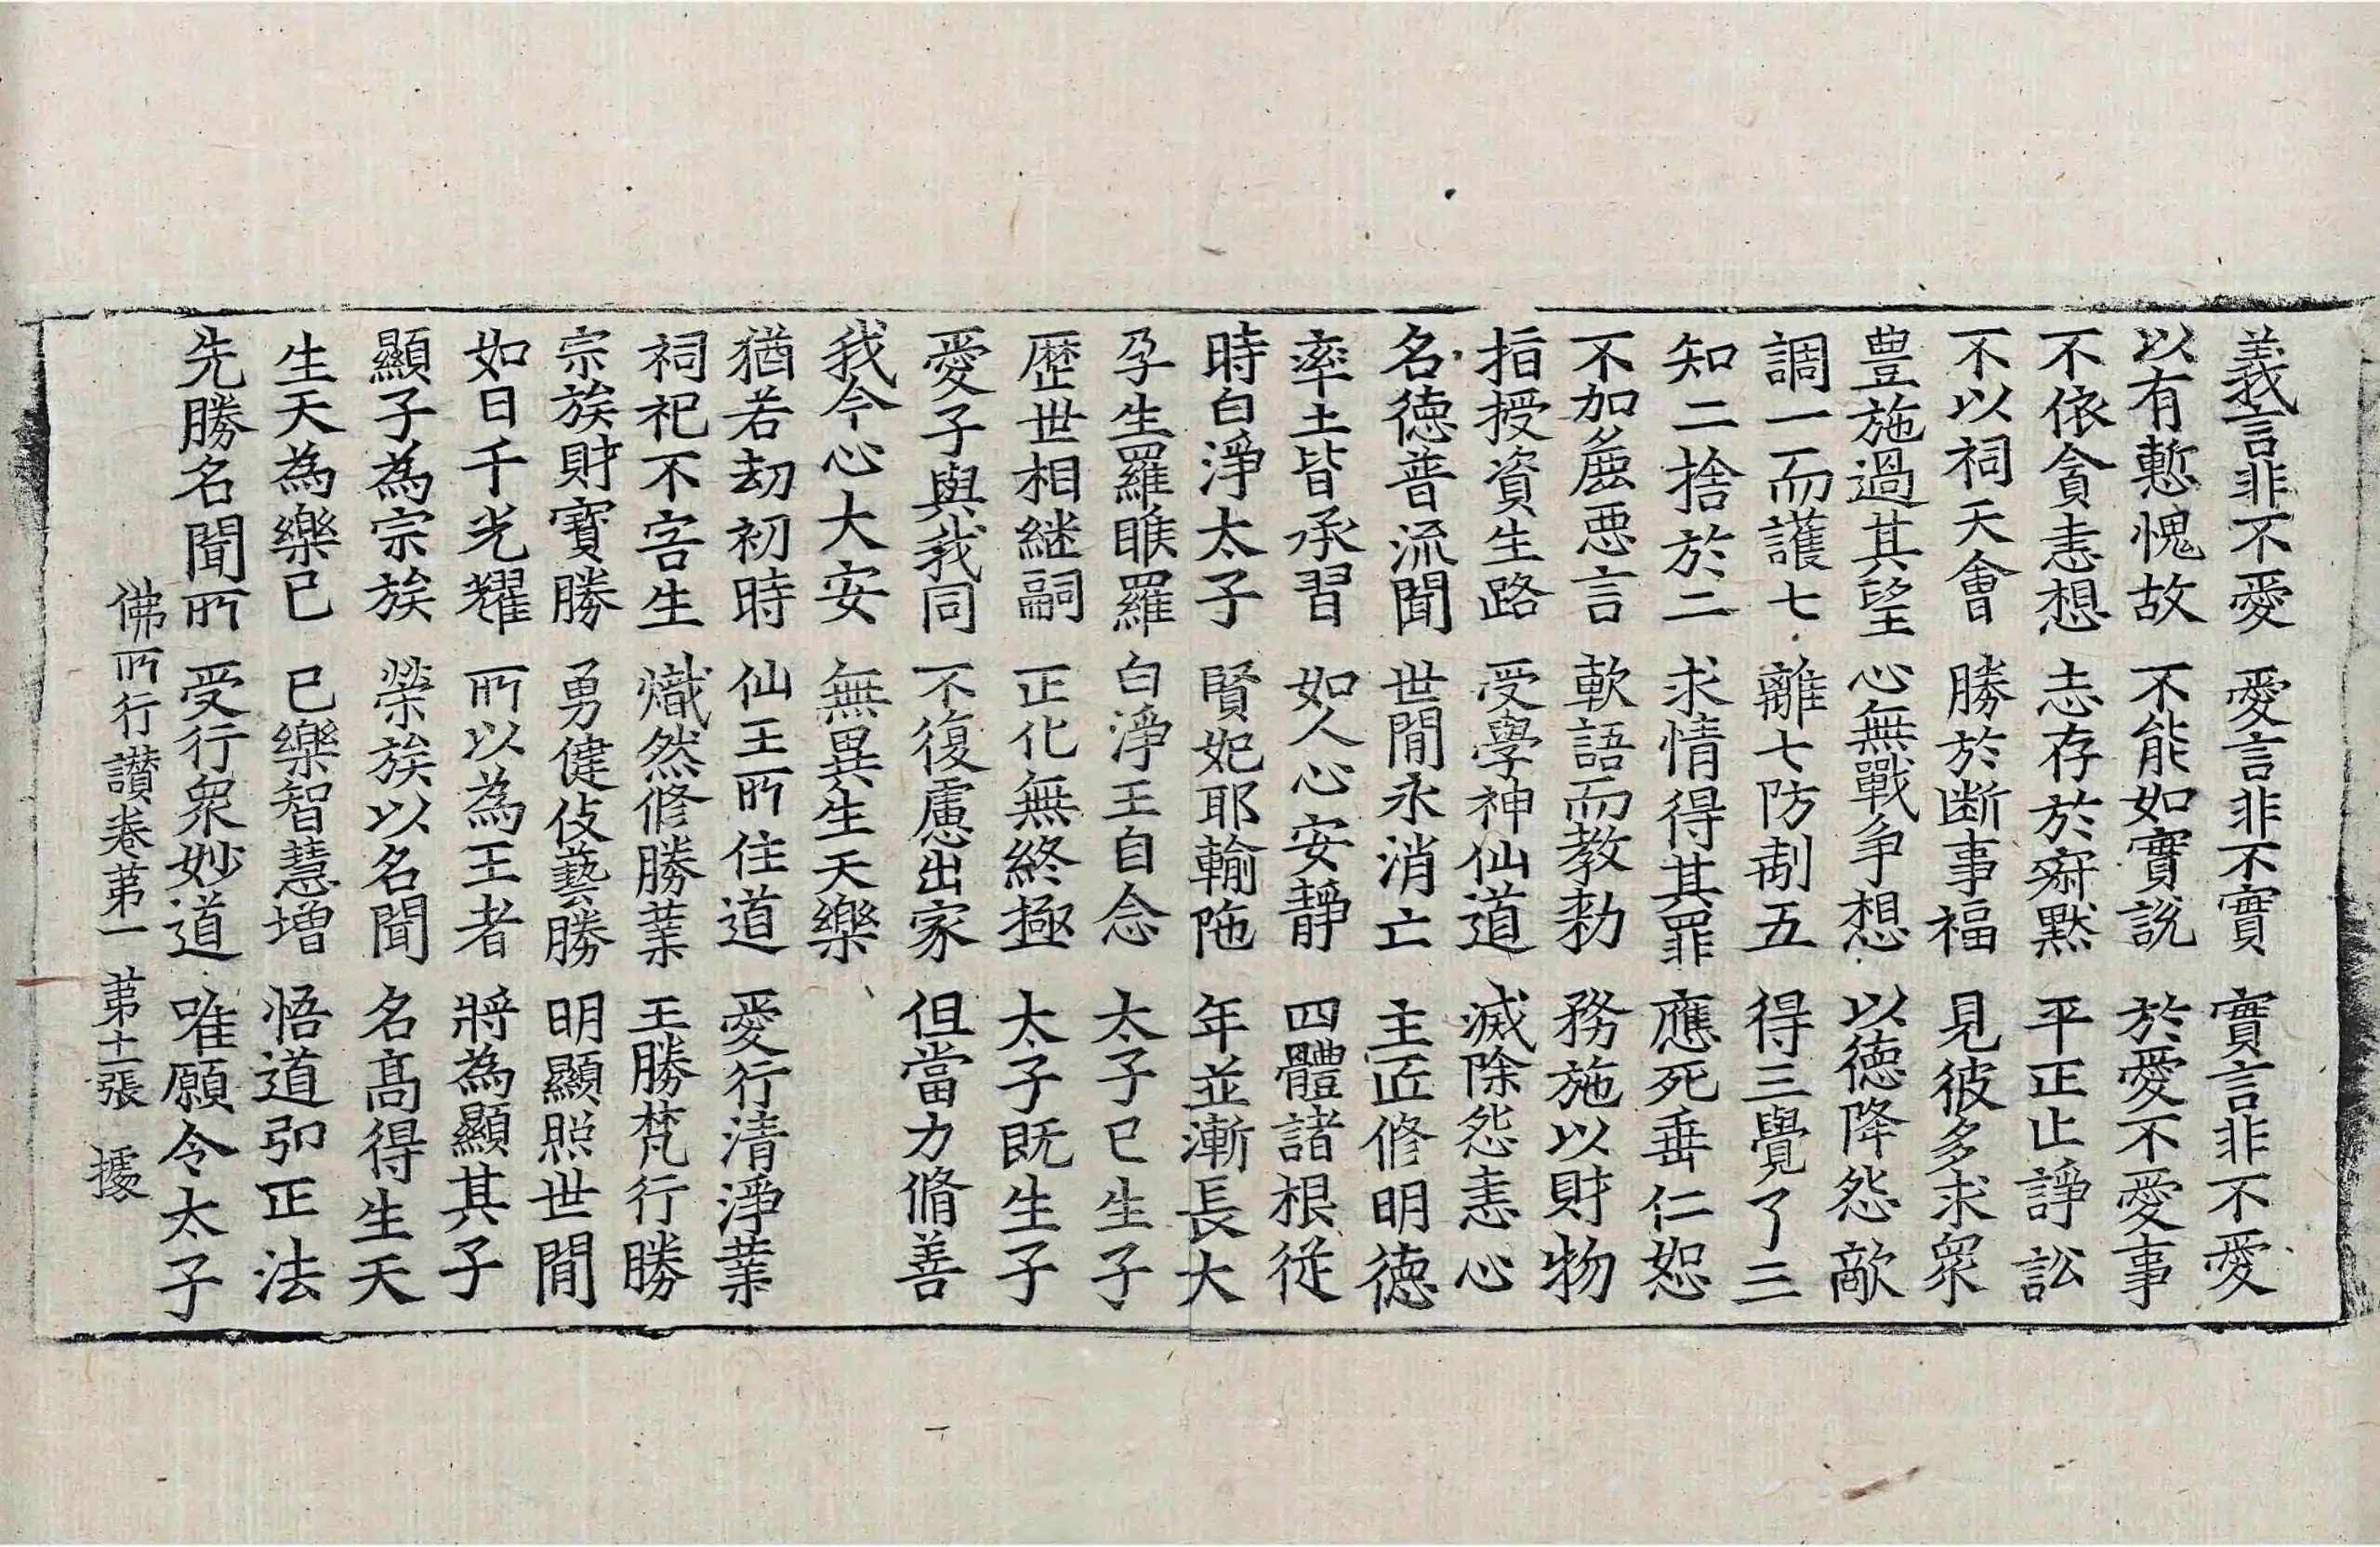 義言非不愛 愛言非不實 實言非不愛
以有慙愧故 不能如實說 於愛不愛事
不依貪恚想 志存於寂默 平正止諍訟
不以祠天會 勝於斷事福 見彼多求衆
豊施過其望 心無戰争想 以德降怨敵
調一而護七 離七防制五 得三覺了三
知二捨於二 求情得其罪 應死垂仁恕
不加麁惡言 軟語而教勑 務施以財物
指授資生路 受學神仙道 滅除怨恚心
名德普流聞 世間永消亡 主匠修明德
率土皆承習 如人心安靜 四體諸根從
時白淨太子 賢妃耶輸陁 年並漸長大
孕生羅睺羅 白淨王自念 太子已生子
歷世相繼嗣 正化無終極 太子既生子
愛子與我同 不復慮出家 但當力脩善
我今心大安 無異生天樂
猶若劫初時 仙王所住道 愛行清淨業
祠祀不害生 熾然修勝業 王勝梵行勝
宗族財寶勝 勇健伎藝勝 明顯照世間
如日千光耀 所以為王者 將為顯其子
顯子為宗族 榮族以名聞 名髙得生天
生天為樂已 已樂智慧增 悟道弘正法
先勝名聞所 受行衆妙道 唯願令太子
佛所行讚卷第一 第十二張 據